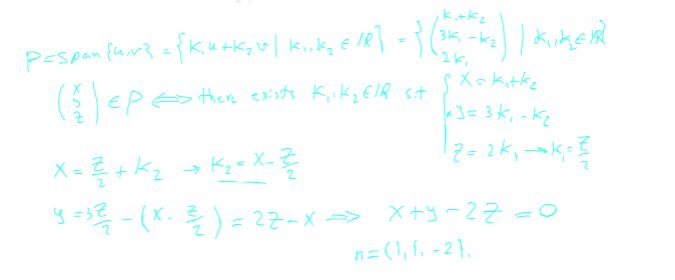 P=span{u,v} = {k₁u+k₂v | k₁,k₂ ∈ ℝ} = {(k₁+k₂ 3k₁-k₂ 2k₁) | k₁,k₂ ∈ ℝ}
(x y z) ∈ P ⟺ there exists k₁,k₂ ∈ ℝ s.t { x = k₁+k₂
y = 3k₁-k₂
z = 2k₁ → k₁ = z/2
x = z/2 + k₂ → k₂ = x - z/2
y = 3z/2 - (x - z/2) = 2z - x ⟹ x+y-2z = 0
n = (1, 1, -2).